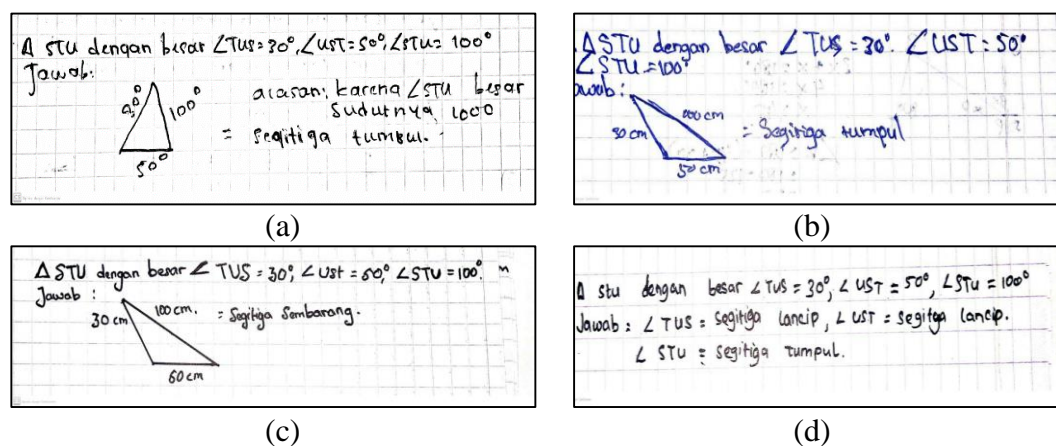 Δ STU dengan besar ∠TUS=30°, ∠UST=50°, ∠STU= 100°
Jawab:
100°
alasan: karena ∠STU besar
sudutnya 1000
= segitiga tumpul.
50°
(a)
ΔSTU dengan besar ∠ TUS =30°. ∠UST=50°
∠STU=100°
awab :
50 cm
= Segitiga tumpul
50 cm
(b)
Δ STU dengan besar ∠ TUS = 30°, ∠ USt = 60°, ∠STU=100°.
Jawab :
30 cm
100 cm.
= Segitiga Sembarang.
60 cm
(c)
Δ stu dengan besar ∠TUS = 30°, ∠ UST = 50°, ∠STU = 100°
Jawab : ∠ TUS = segitiga lancip, ∠ UST = segitga lancip.
∠ STU = segitiga tumpul.
(d)